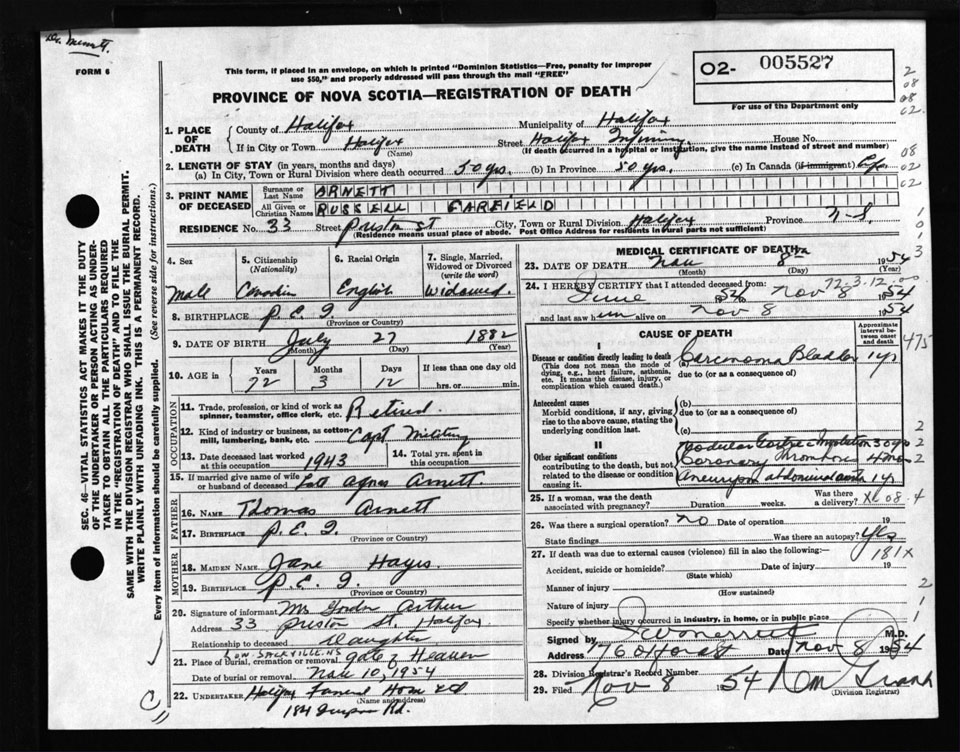 FORM 6
This form, if placed in an envelope, on which is printed "Dominion Statistics—Free, penalty for improper
use $50," and properly addressed will pass through the mail "FREE"
PROVINCE OF NOVA SCOTIA—REGISTRATION OF DEATH
02- 005527
For use of the Department only
SEC. 46—VITAL STATISTICS ACT MAKES IT THE DUTY
OF THE UNDERTAKER OR PERSON ACTING AS UNDER-
TAKER TO OBTAIN ALL THE PARTICULARS REQUIRED
IN THE "REGISTRATION OF DEATH" AND TO FILE THE
SAME WITH THE DIVISION REGISTRAR WHO SHALL ISSUE THE BURIAL PERMIT.
WRITE PLAINLY WITH UNFADING INK. THIS IS A PERMANENT RECORD.
Every item of information should be carefully supplied. (See reverse side for instructions.)
1. PLACE OF DEATH
County of Halifax Municipality of Halifax
If in City or Town Halifax Street Halifax Infirmary House No.
(Name) (If death occurred in a hospital or institution, give the name instead of street and number)
2. LENGTH OF STAY (in years, months and days)
(a) In City, Town or Rural Division where death occurred 50 yrs. (b) In Province 50 yrs. (c) In Canada (if immigrant) Life
3. PRINT NAME OF DECEASED
Surname or Last Name ARNETT
All Given or Christian Names RUSSELL GARFIELD
RESIDENCE No. 33 Street Preston St City, Town or Rural Division Halifax Province N.S.
(Residence means usual place of abode. Post Office Address for residents in rural parts not sufficient)
4. Sex Male
5. Citizenship (Nationality) Canadian
6. Racial Origin English
7. Single, Married, Widowed or Divorced (write the word) Widowed.
8. BIRTHPLACE P.E.I.
(Province or Country)
9. DATE OF BIRTH July 27 1882
(Month) (Day) (Year)
10. AGE in Years 72 Months 3 Days 12 If less than one day old hrs. or min.
OCCUPATION
11. Trade, profession, or kind of work as spinner, teamster, office clerk, etc. Retired.
12. Kind of industry or business, as cotton-mill, lumbering, bank, etc. Capt Military
13. Date deceased last worked at this occupation 1943
14. Total yrs. spent in this occupation
15. If married give name of wife or husband of deceased Late Agnes Arnett.
FATHER
16. NAME Thomas Arnett
17. BIRTHPLACE P.E.I.
(Province or Country)
MOTHER
18. MAIDEN NAME Jane Hayes
19. BIRTHPLACE P.E.I.
(Province or Country)
20. Signature of informant Mrs Gordon Arthur
Address 33 Preston St. Halifax
Relationship to deceased Daughter
LOW. SACKVILLE. NS
21. Place of burial, cremation or removal Gate of Heaven
Date of burial or removal Nov 10, 1954
22. UNDERTAKER Halifax Funeral Home Ltd
(Name and address)
MEDICAL CERTIFICATE OF DEATH
23. DATE OF DEATH Nov 8 1954
(Month) (Day)
72-3-12
24. I HEREBY CERTIFY that I attended deceased from:
June 54 Nov 8 1954
and last saw him alive on Nov 8 1954
CAUSE OF DEATH
Approximate interval between onset and death
I
Disease or condition directly leading to death
(This does not mean the mode of dying, e.g., heart failure, asthenia, etc. It means the disease, injury, or complication which caused death.)
(a) Carcinoma Bladder 1 yr
due to (or as a consequence of)
475
Antecedent causes
Morbid conditions, if any, giving rise to the above cause, stating the underlying condition last.
(b)
due to (or as a consequence of)
(c)
II
Other significant conditions contributing to the death, but not related to the disease or condition causing it.
Coronary Thrombosis 4 mos
Aneurysm abdominal aorta 1 yr
25. If a woman, was the death associated with pregnancy? Duration weeks. Was there a delivery?
26. Was there a surgical operation? no Date of operation 19
State findings Was there an autopsy? Yes
181X
27. If death was due to external causes (violence) fill in also the following:—
Accident, suicide or homicide? Date of injury 19
(State which)
Manner of injury
(How sustained)
Nature of injury
Specify whether injury occurred in industry, in home, or in public place
Signed by M.D.
Address Date Nov 8 1954
28. Division Registrar's Record Number
29. Filed Nov 8 54
(Division Registrar)